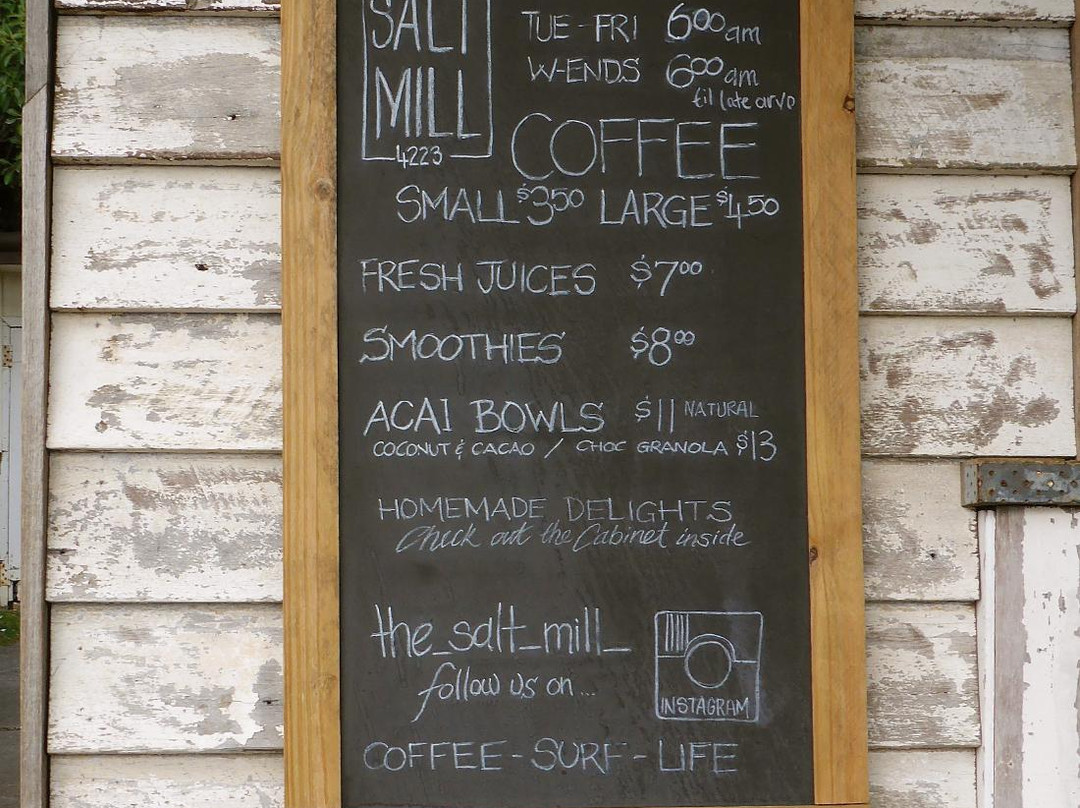 SALT
MILL
4223
TUE - FRI 6:00 am
W-ENDS 6:00 am
til late arvo
COFFEE
SMALL $3.50 LARGE $4.50
FRESH JUICES $7.00
SMOOTHIES $8.00
ACAI BOWLS $11 NATURAL
COCONUT & CACAO / CHOC GRANOLA $13
HOMEMADE DELIGHTS
Check out the Cabinet inside
the_salt_mill_
follow us on ...
INSTAGRAM
COFFEE - SURF - LIFE